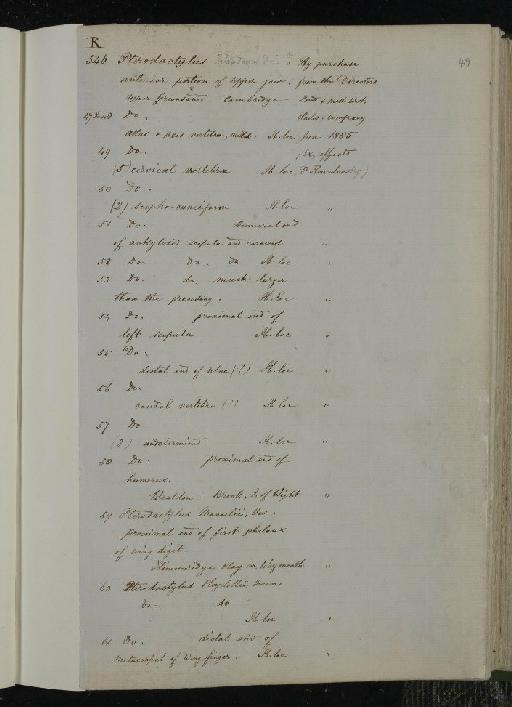 R
49
546 Pterodactylus " By purchase
anterior portion of upper jaw. from the Directors
upper Greensand Cambridge
47 Do. company
atlas & axis vertebra, H. loc Jan 1885
49 Do. ; Ex. effects
(5) cervical vertebra H. loc
50 Do.
(2) scapho-cuneiform H. loc "
51 Do. humeral end
of ankylosed scapula and coracoid "
52 Do. Do. Do H. loc "
53 Do. do. much larger
than the preceding. H. loc "
54 Do. proximal end of
left scapula H. loc "
55 Do.
distal end of ulna (?) H. loc "
56 Do.
caudal vertebra (?) H. loc "
57 Do
(2) undetermined H. loc "
58 Do. proximal end of
humerus.
Wealden Brook, I. of Wight "
59 Pterodactylus Manselii, Ow.
proximal end of first phalanx
of wing digit
Kimmeridge Clay nr Weymouth "
60 Pterodactylus
do- do
H. loc "
61 Do. distal end of
metacarpal of wing finger. H. loc "